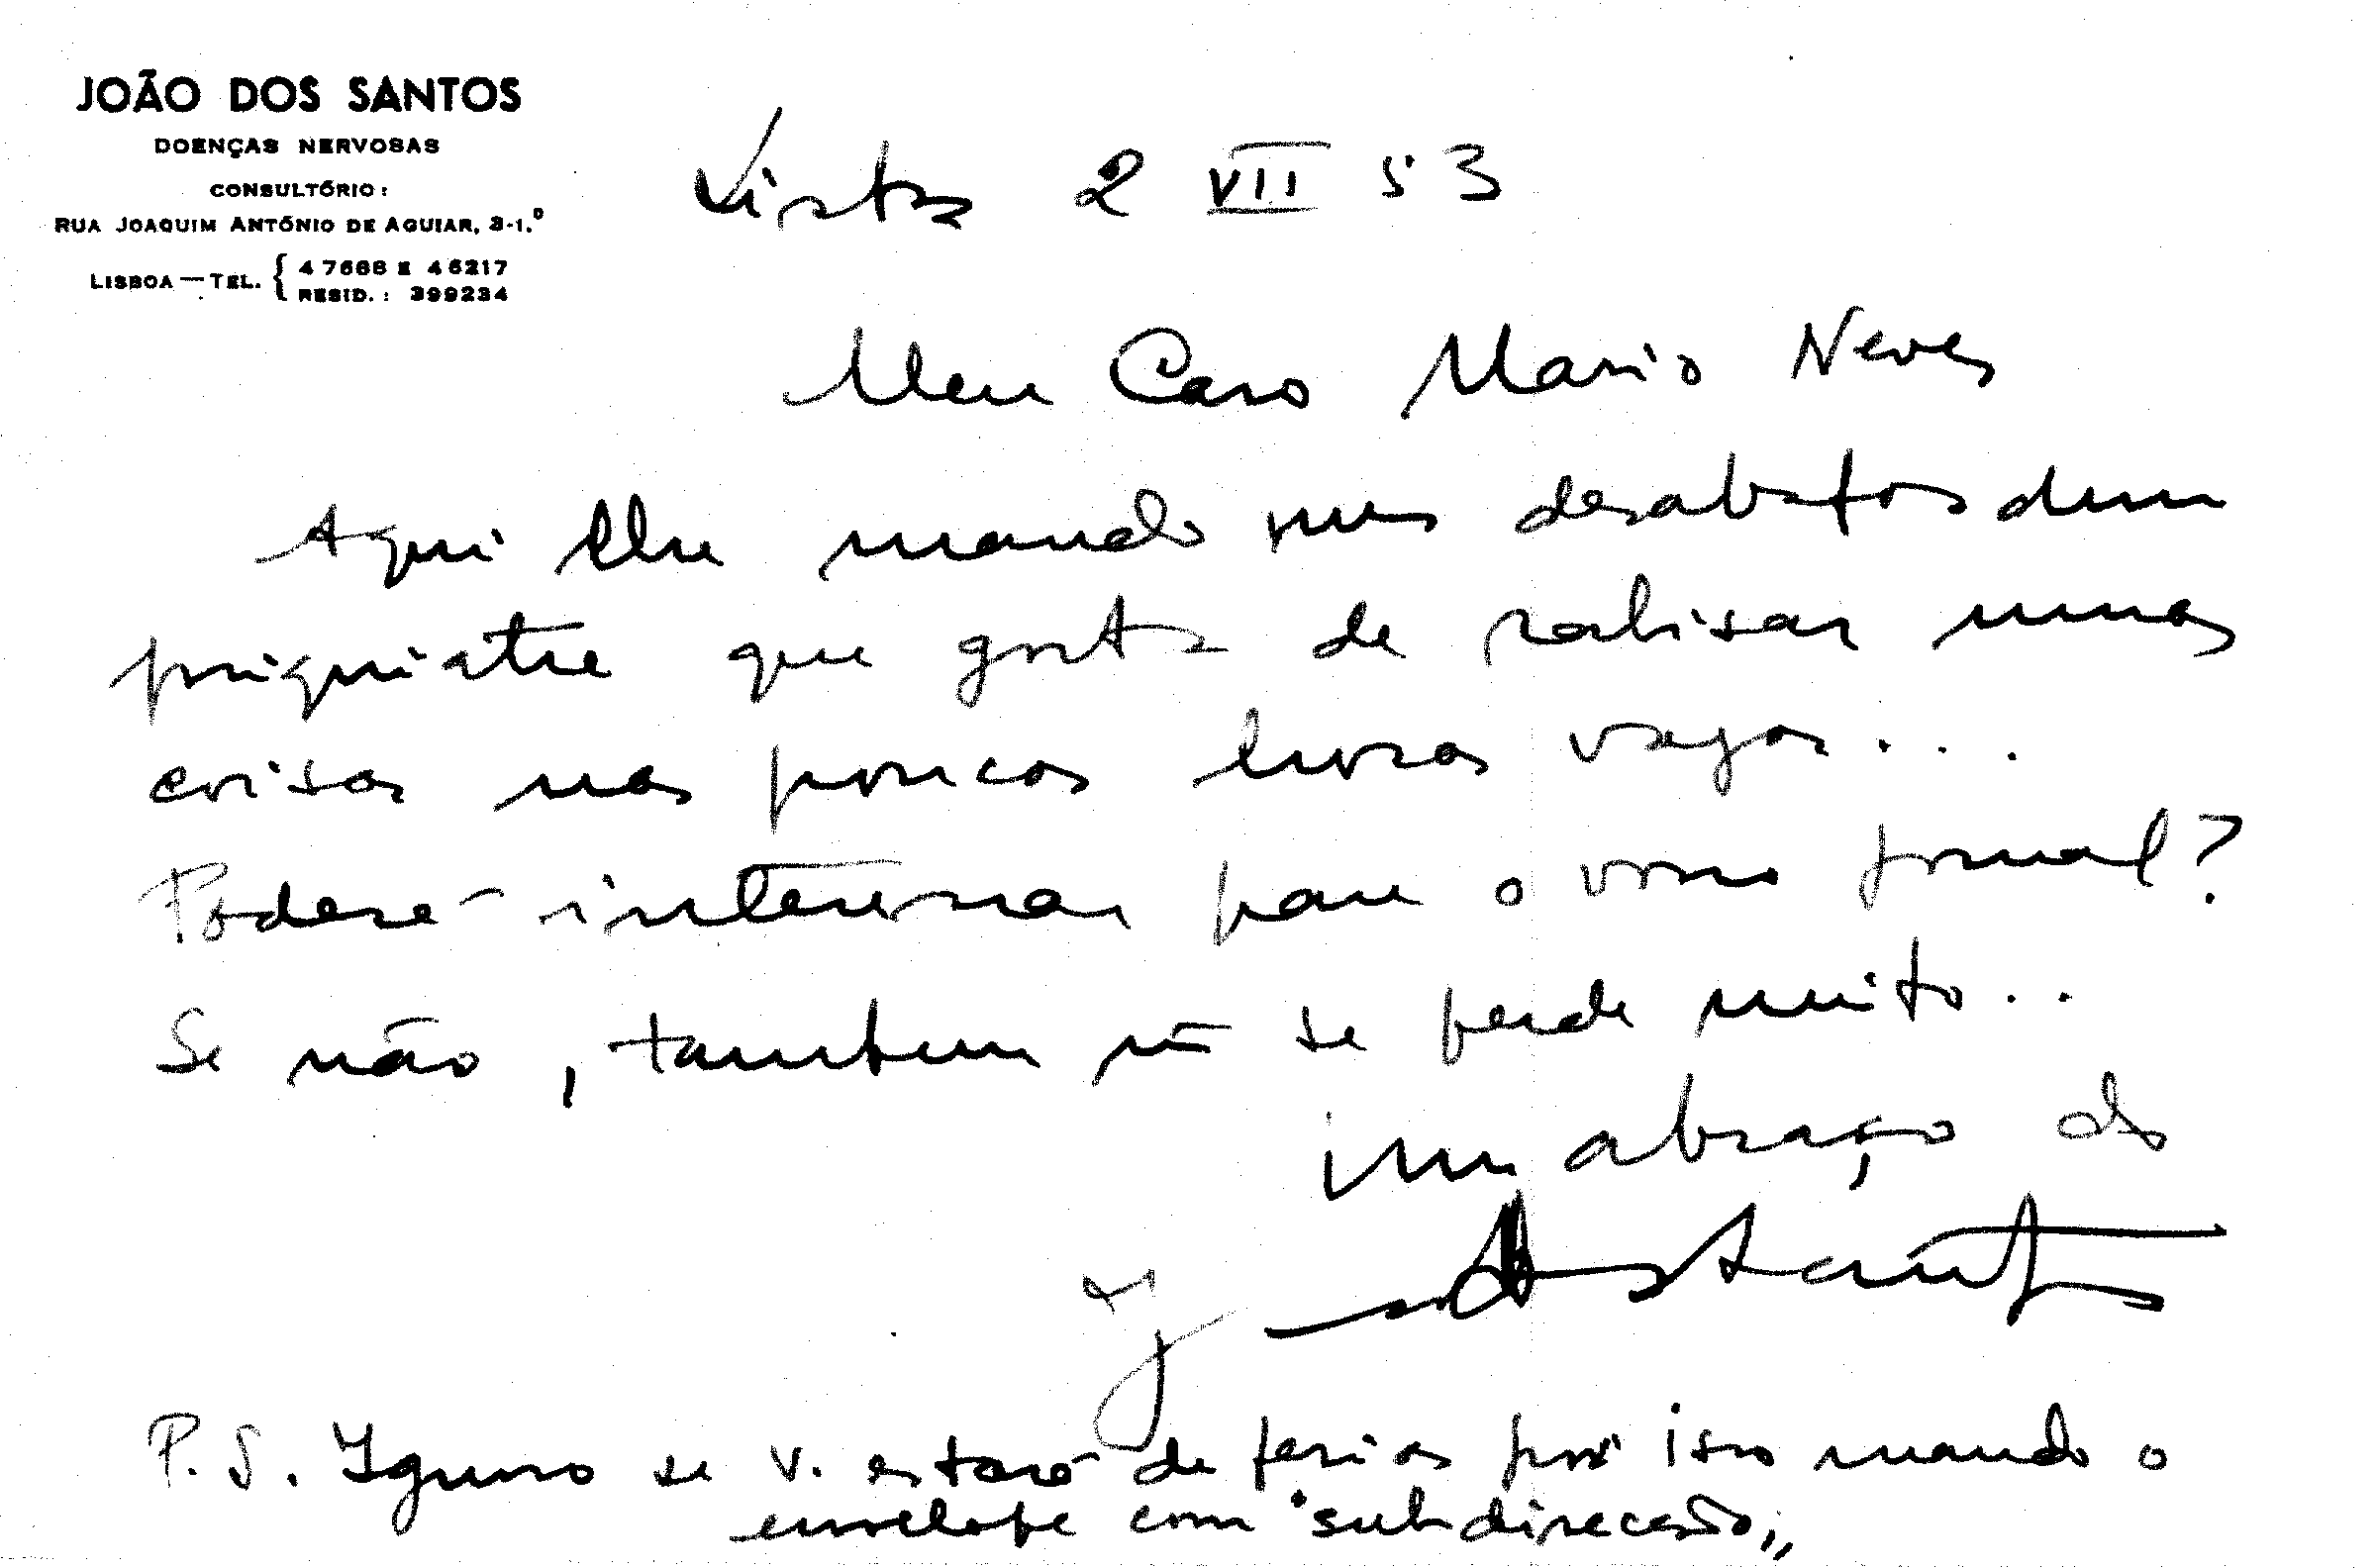 JOÃO DOS SANTOS
DOENÇAS NERVOSAS
CONSULTÓRIO:
RUA JOAQUIM ANTÓNIO DE AGUIAR, 3-1.º
LISBOA — TEL. { 47688 E 46217
RESID.: 399234
Lisboa 2 VII 53
Meu Caro Mario Neves
Aqui lhe mando uns desabafos dum
psiquiatra que gosta de rabiscar umas
coisas nas poucas horas vagas...
Poderá interessar para o vosso jornal?
Se não, tambem não se perde muito..
um abraço do
João dos Santos
P.S. Ignoro se v. estará de ferias por isso mando o
envelope com "subdirecção"